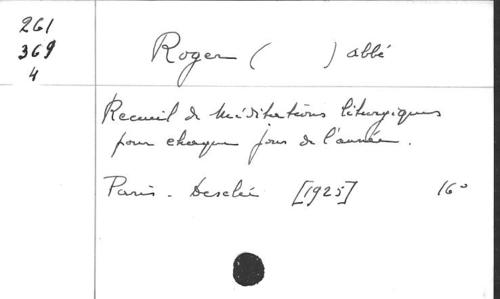 261
369
4
Roger ( ) abbé
Recueil de Méditations liturgiques
pour chaque jour de l'année.
Paris - Desclée [1925] 16°